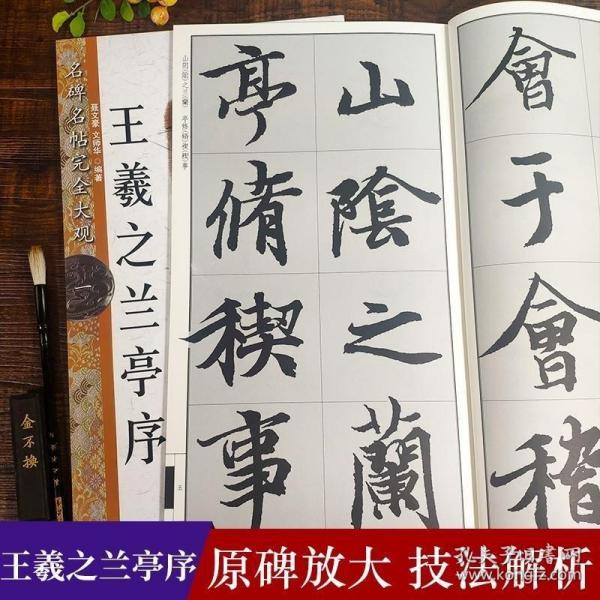 名碑名帖完全大观
聂文豪 文师华 编著
一
王羲之兰亭序
會于會稽
山陰之蘭
亭脩稧事
山阴(陰)之兰(蘭) 亭修(脩)稧(禊)事
五
金不换
王羲之兰亭序
原碑放大 技法解析
孔夫子旧书网
www.kongfz.com